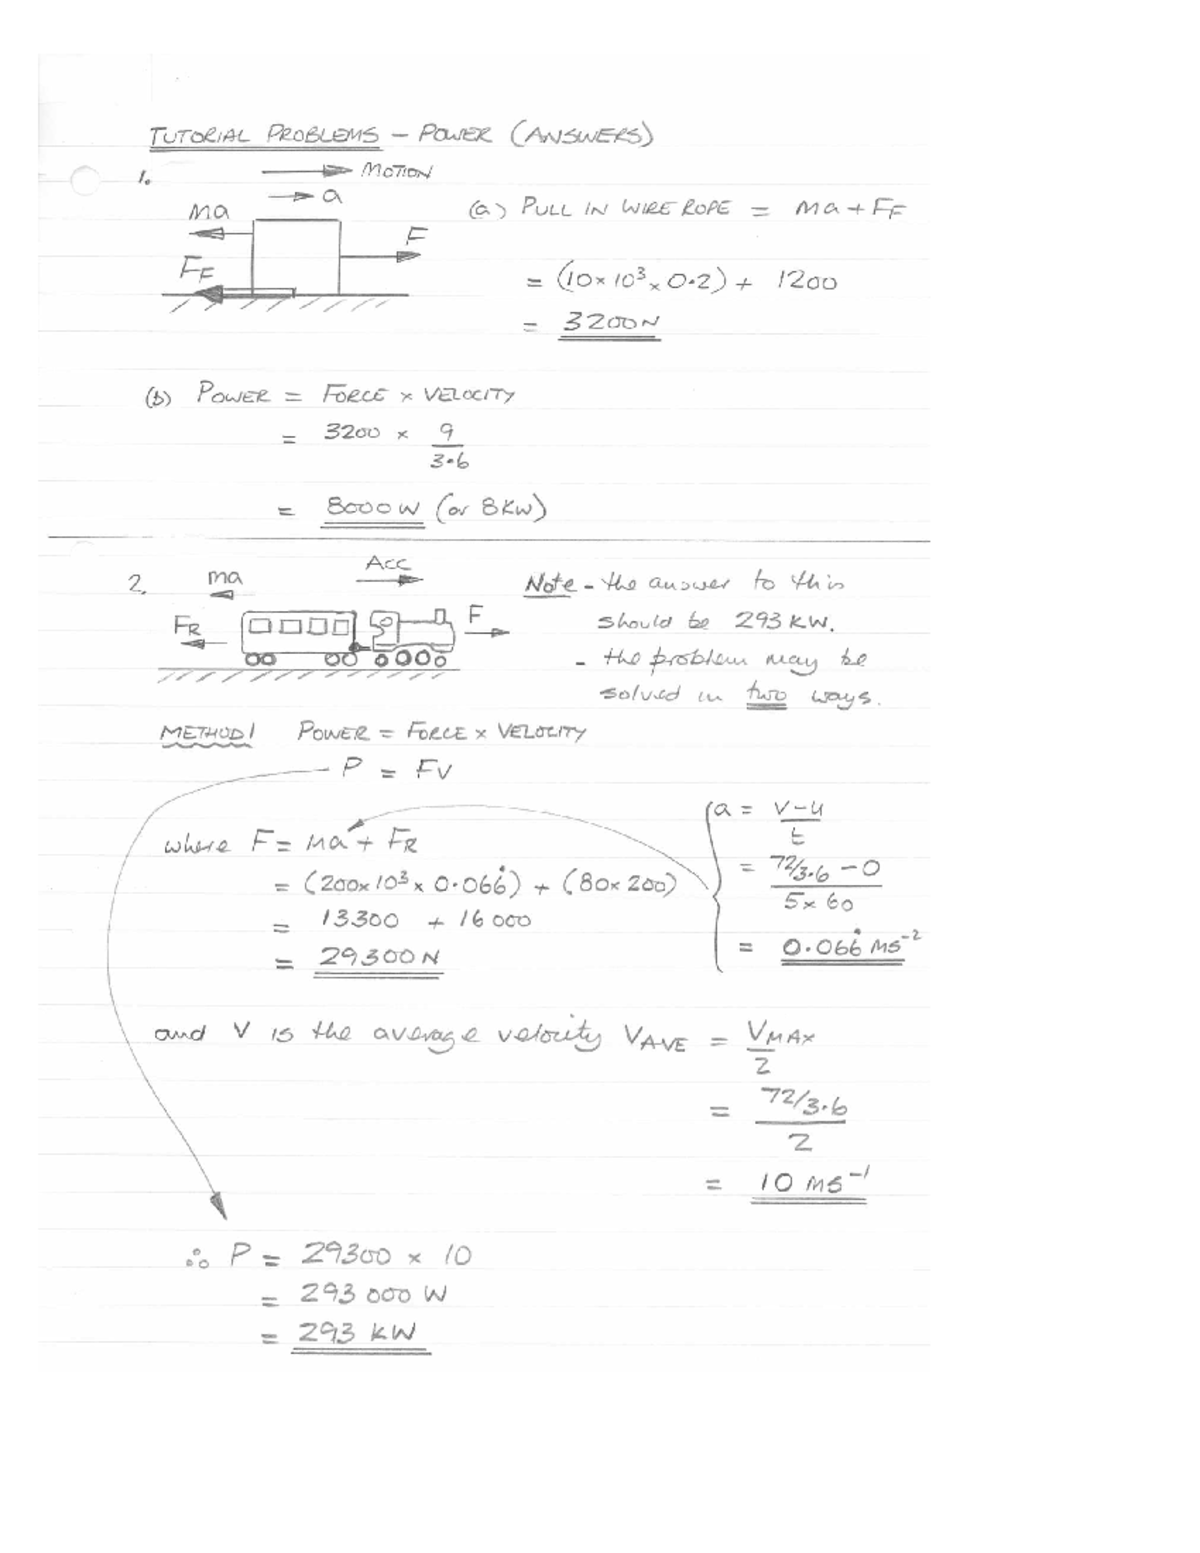 TUTORIAL PROBLEMS – POWER (ANSWERS)
1.
→ MOTION
→ a
Ma
F
FF
(a) PULL IN WIRE ROPE = Ma + FF
= (10 × 10³ × 0.2) + 1200
= 3200N
(b) POWER = FORCE × VELOCITY
= 3200 × 9/3.6
= 8000W (or 8KW)
2.
ma
Acc
FR
F
Note - the answer to this
should be 293 KW.
- the problem may be
solved in two ways.
METHOD 1 POWER = FORCE × VELOCITY
P = FV
where F = Ma + FR
= (200×10³ × 0.066̇) + (80×200)
= 13300 + 16000
= 29300N
a = V-U/t
= 72/3.6 - 0 / 5×60
= 0.066̇ MS⁻²
and V is the average velocity VAVE = VMAX/2
= 72/3.6 / 2
= 10 MS⁻¹
∴ P = 29300 × 10
= 293 000 W
= 293 KW